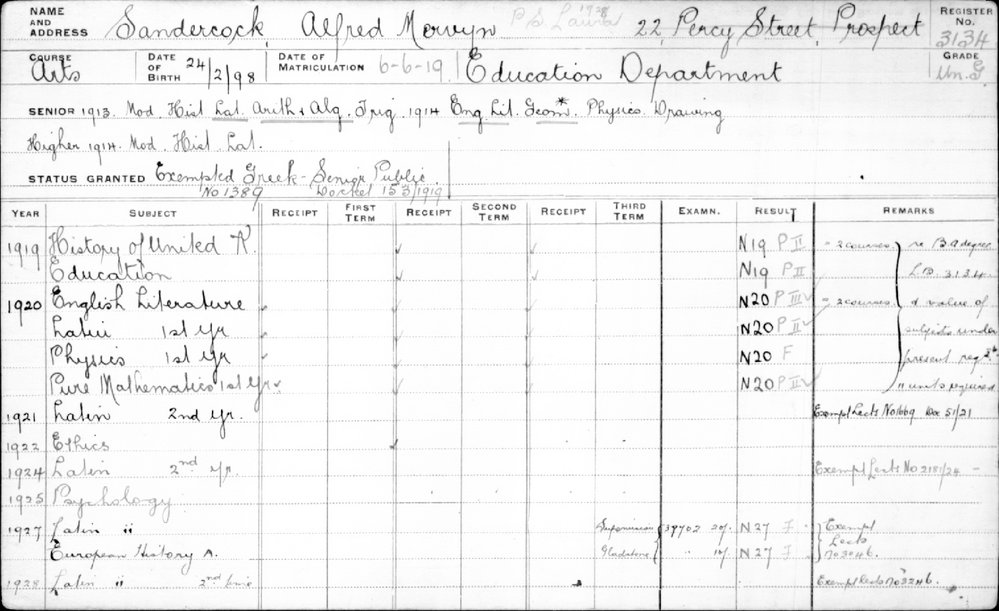 NAME AND ADDRESS Sandercock, Alfred Mervyn P S Laura 1928 22, Percy Street, Prospect REGISTER No. 3134
COURSE Arts DATE OF BIRTH 24/2/98 DATE OF MATRICULATION 6-6-19 Education Department GRADE Un. G
SENIOR 1913 Mod. Hist Lat. Arith & Alg. Trig. 1914 Eng Lit. Geom* Physics Drawing
Higher 1914 Mod. Hist. Lat.
STATUS GRANTED Exempted Greek - Senior Public
No 1389 Docket 153/1919
YEAR SUBJECT RECEIPT FIRST TERM RECEIPT SECOND TERM RECEIPT THIRD TERM EXAMN. RESULT REMARKS
1919 History of United K. ✓ ✓ N19 P II = 2 courses re B.A degree
Education ✓ ✓ N19 P II L.B. 3134
1920 English Literature ✓ ✓ ✓ N20 P III ✓ = 2 courses & value of
Latin 1st Yr ✓ ✓ ✓ N20 P II ✓ subjects under
Physics 1st Yr ✓ ✓ ✓ N20 F present regns
Pure Mathematics 1st Yr ✓ ✓ ✓ N20 P II ✓ 11 units required
1921 Latin 2nd Yr. Exempt Lects No 1669 Doc 51/21
1922 Ethics ✓
1924 Latin 2nd yr. Exempt Lects No 2181/24 -
1925 Psychology
1927 Latin ii Supervision 39702 20/. N27 F Exempt
European History A. Gladstone " 10/. N27 F Lects
No 3046.
1928 Latin ii 2nd time Exempt Lects No 3246.